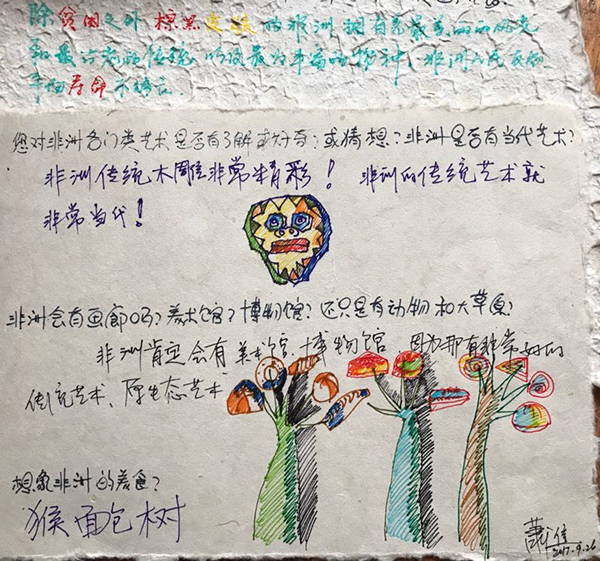 除贫困之外 的非洲拥有着最美丽的阳光
和最 的 物种,非洲人民
平均寿命不
您对非洲各门类艺术是否有了解或好奇?或猜想?非洲是否有当代艺术?
非洲传统木雕非常精彩!非洲的传统艺术就
非常当代!
非洲会有画廊吗?美术馆?博物馆?还只是有动物和大草原?
非洲肯定会有美术馆、博物馆 因为那有非常好的
传统艺术、原生态艺术
想象非洲的美食?
猴面包树
萧 2017.9.26